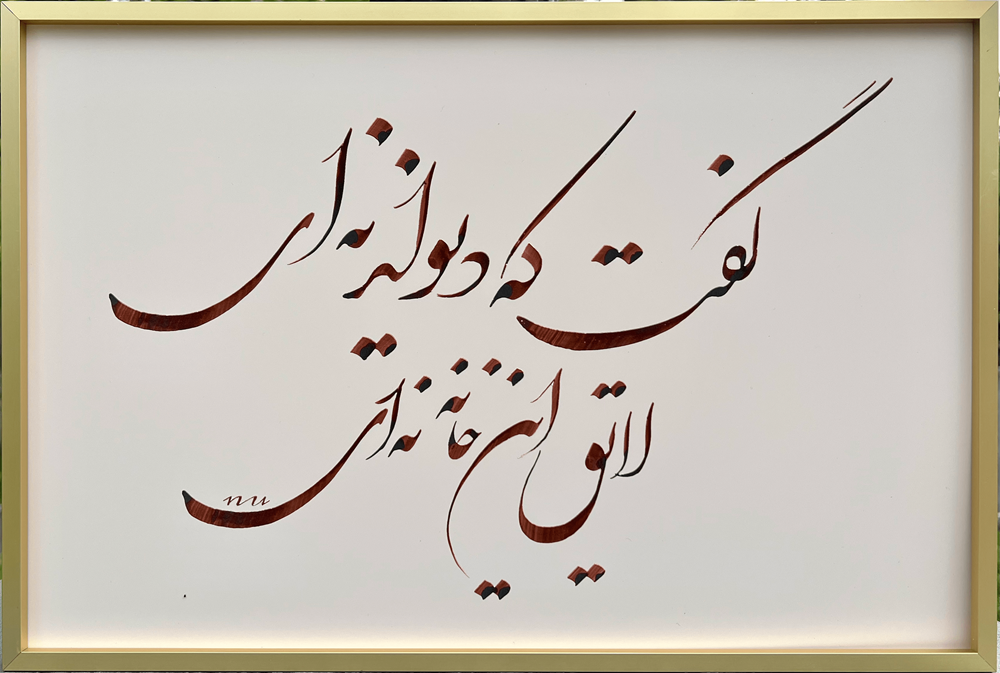 گفت که دیوانه نه ای
لایق این خانه نه ای
nu